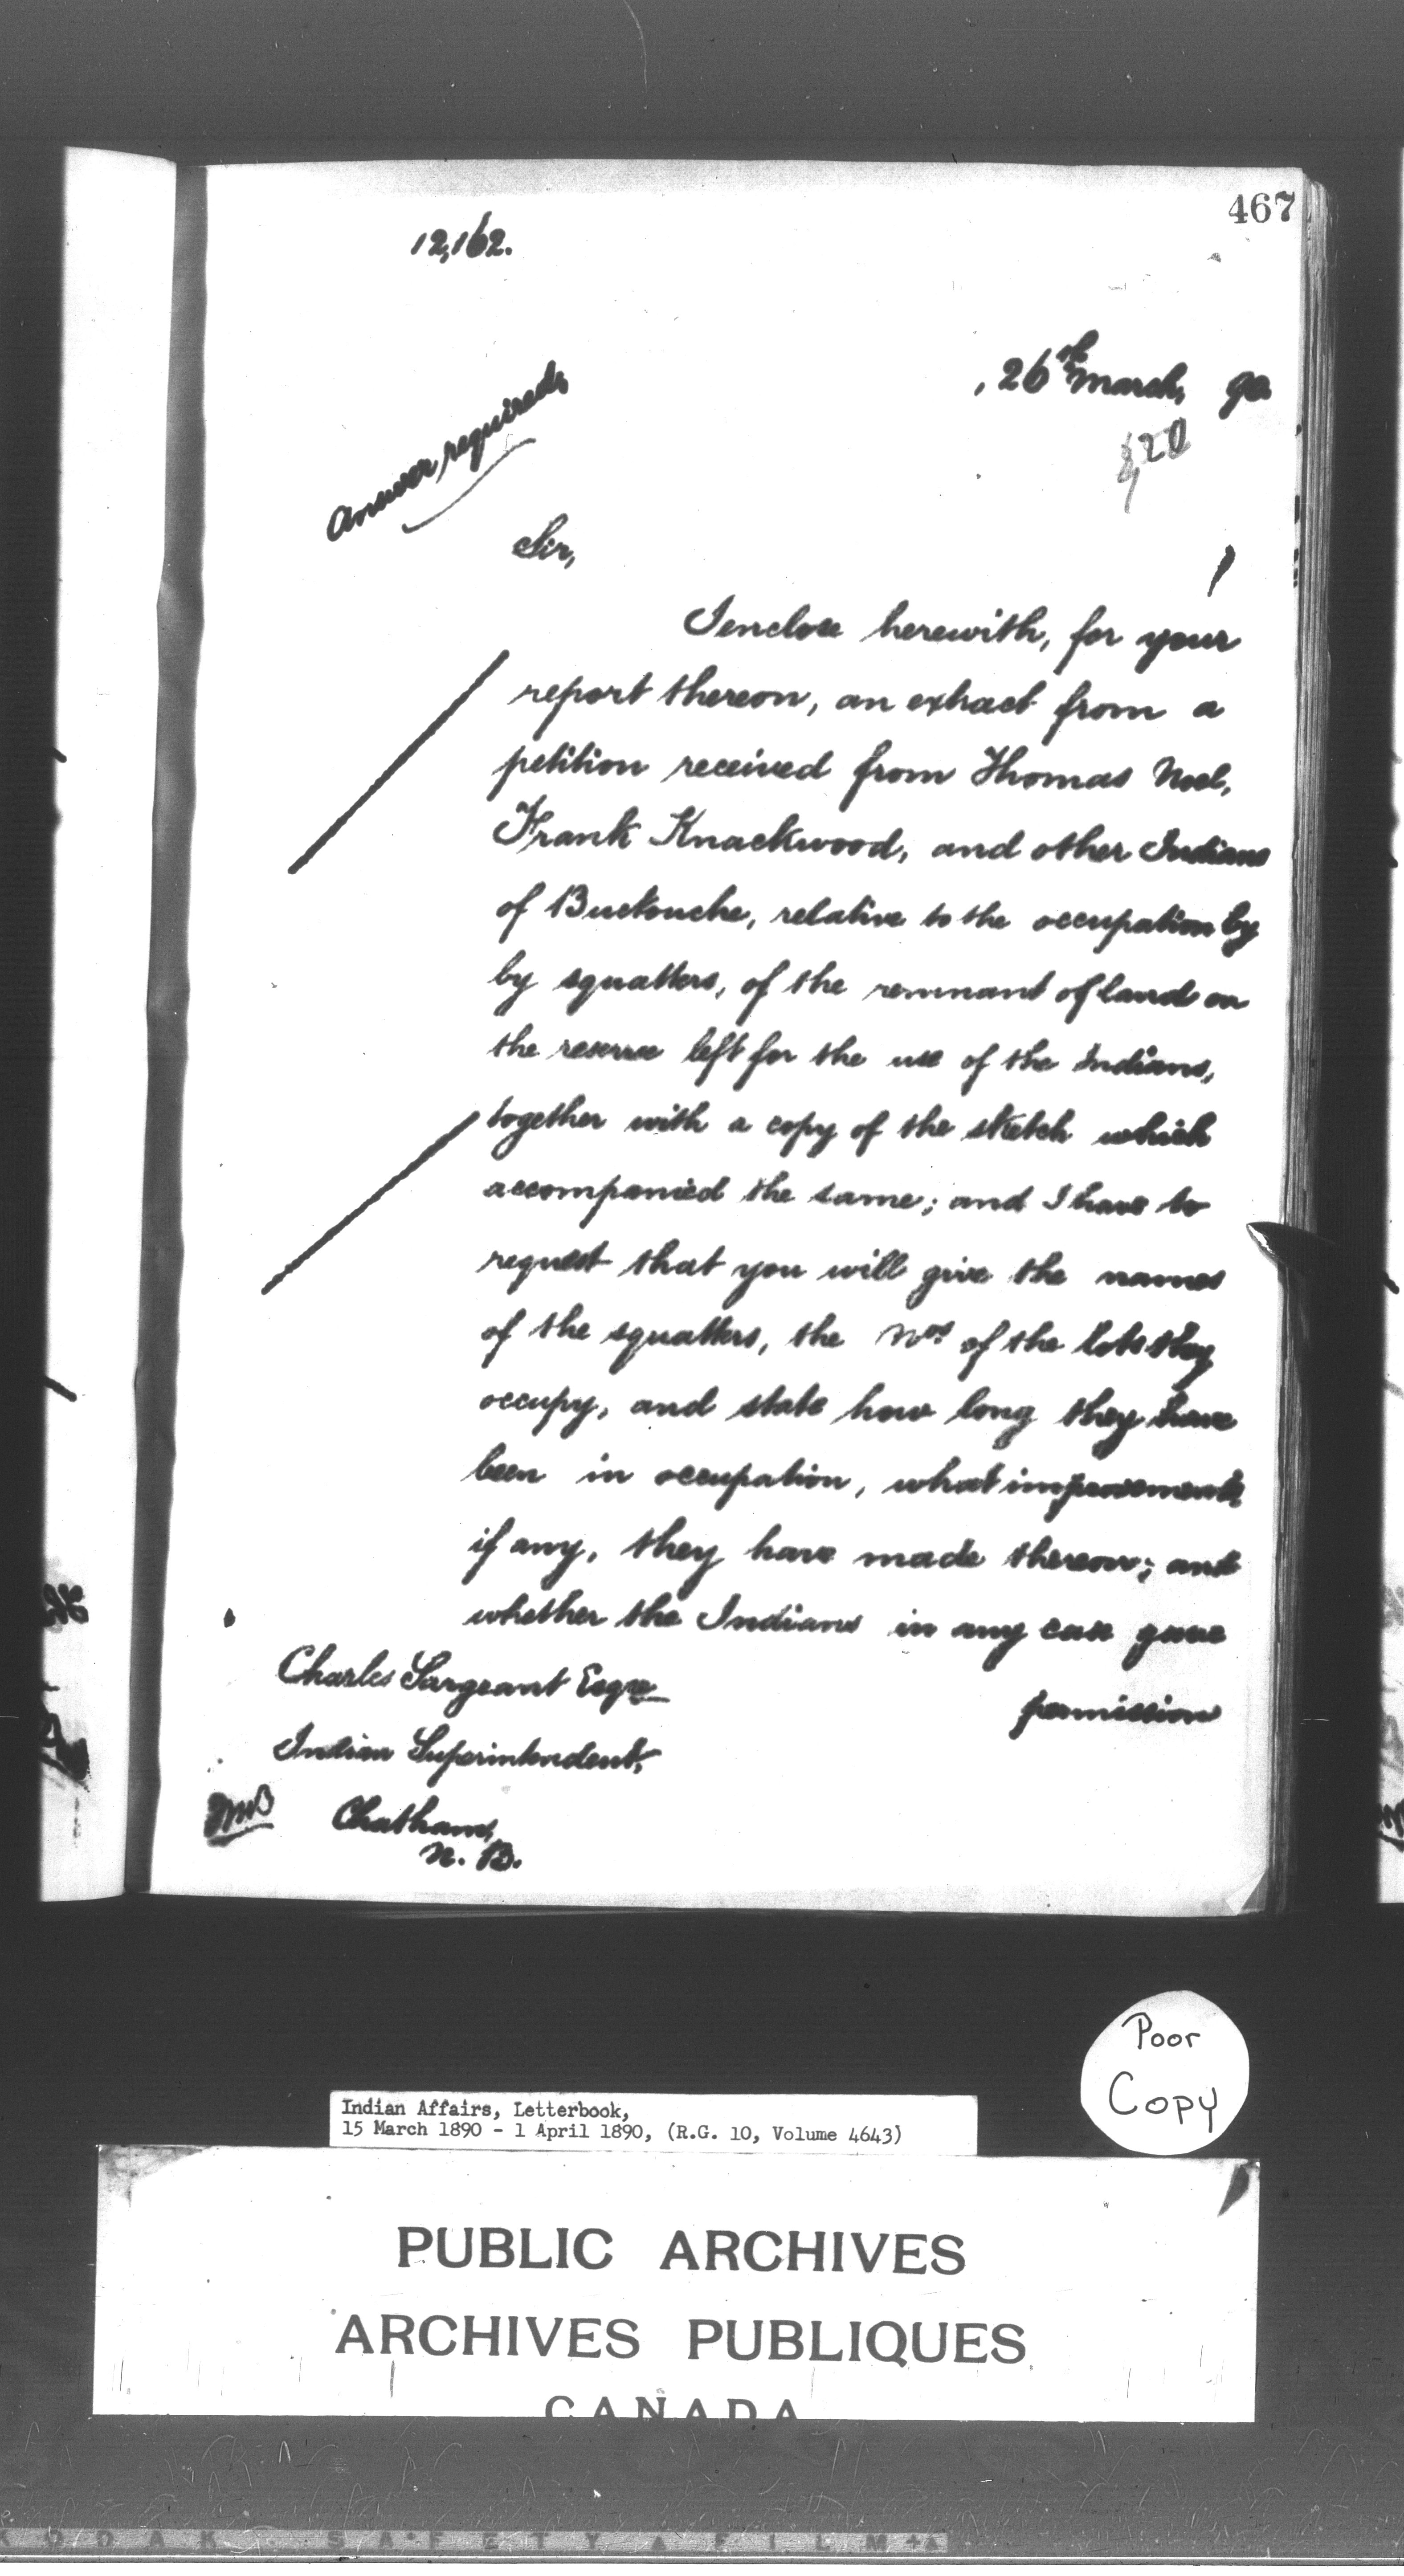 467
12,162.
, 26th March, 90.
Answer required.
Sir,
I enclose herewith, for your
report thereon, an extract from a
petition received from Thomas Noel,
Frank Knackwood, and other Indians
of Buctouche, relative to the occupation by
by squatters, of the remnant of land on
the reserve left for the use of the Indians,
together with a copy of the sketch which
accompanied the same; and I have to
request that you will give the names
of the squatters, the Nos. of the lots they
occupy, and state how long they have
been in occupation, what improvements,
if any, they have made thereon; and
whether the Indians in any case gave
permission
Charles Sargeant Esqre
Indian Superintendent,
Chatham,
N. B.
Poor
Copy
Indian Affairs, Letterbook,
15 March 1890 - 1 April 1890, (R.G. 10, Volume 4643)
PUBLIC ARCHIVES
ARCHIVES PUBLIQUES
CANADA
KODAK SAFETY FILM